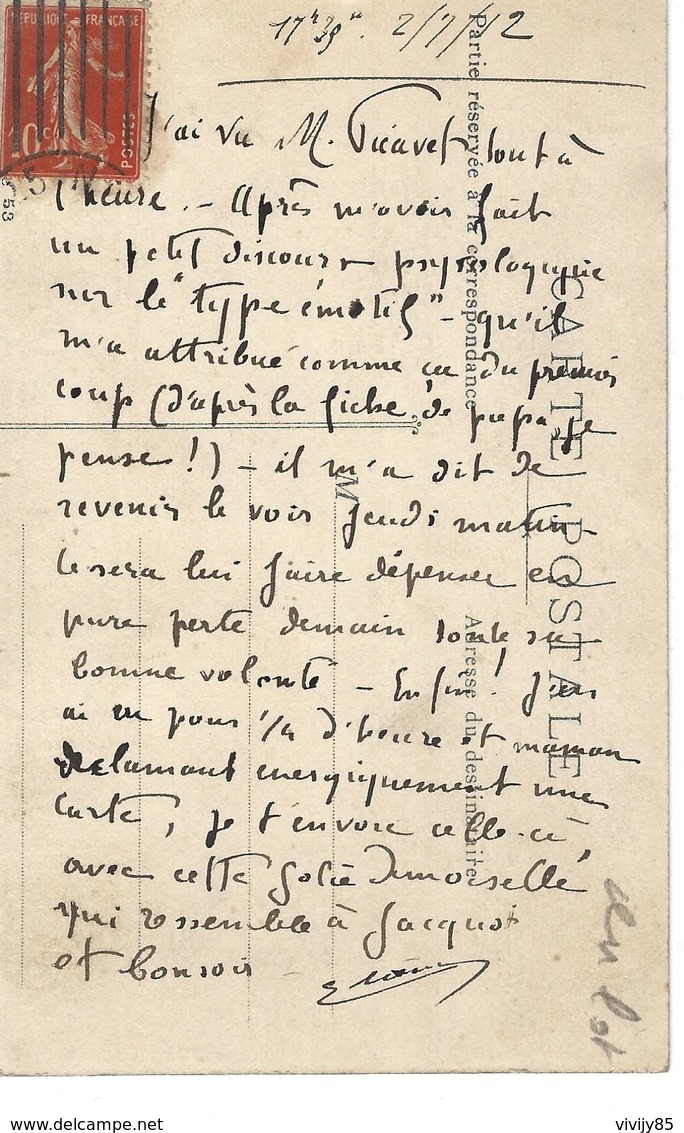 17h39m. 2/7/12
J'ai vu M. Picavet tout à
l'heure. - Après m'avoir fait
un petit discours psychologique
sur le "type émotif" - qu'il
m'a attribué comme ça du premier
coup (d'après la fiche de papa, je
pense !) - il m'a dit de
revenir le voir jeudi matin
ce sera lui faire dépenser en
pure perte demain toute sa
bonne volonté - Enfin ! J'en
ai eu pour 1/4 d'heure et maman
réclamant energiquement une
carte, je t'envoie celle-ci,
avec cette jolie demoiselle
qui ressemble à Jacquot
et bonsoir -
RÉPUBLIQUE FRANÇAISE
10c
POSTES
53
CARTE POSTALE
Partie réservée à la correspondance
Adresse du destinataire
M
www.delcampe.net
vivijy85